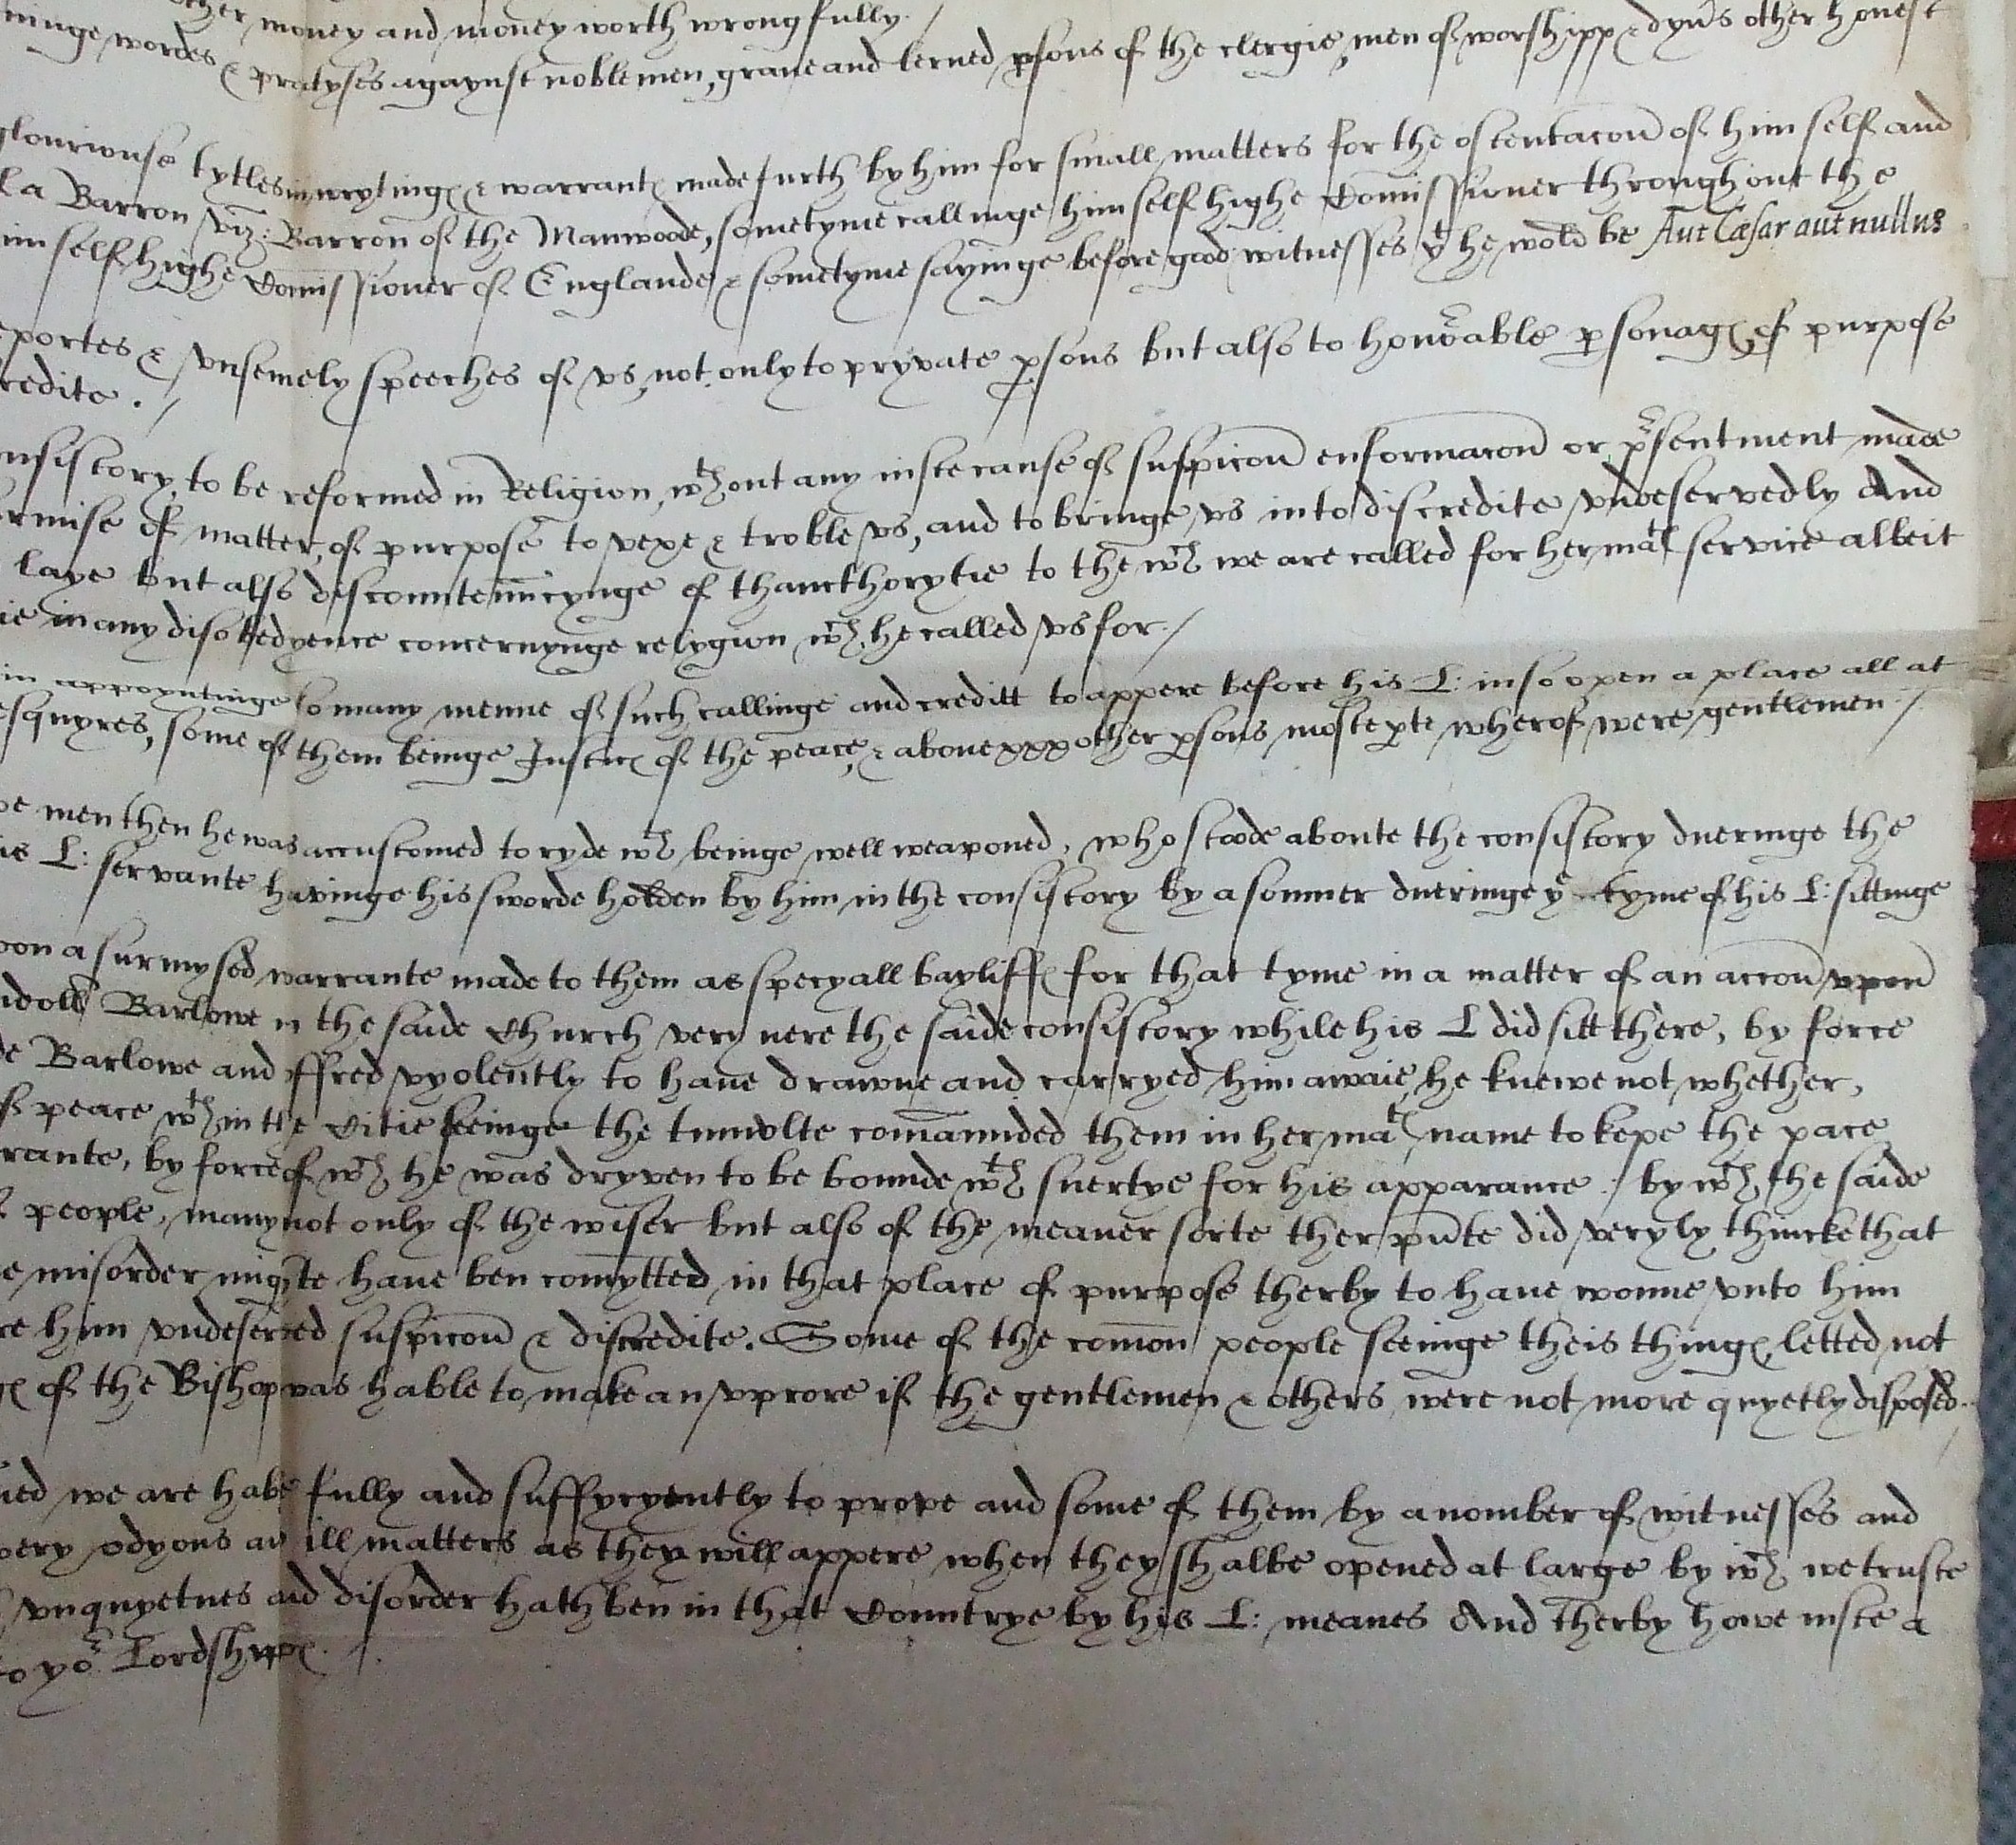 other money and money worth wrongfully./
ninge wordes & pratyses agaynst noble men, grave and lerned psons of the clergie, men of worshipp & dyu's other honest
glouriouse tytles in wryting & warrant made furth by him for small matters for the ostentacon of him self and
l a Barron viz: Barron of the Manwoode, sometyme callinge him self highe Comissioner throughout the
im self highe Comissioner of Englande & sometyme sayinge before good witnesses yt he wold be Aut Cæsar aut nullus
eportes & vnsemely speeches of vs not only to pryvate psons but also to honorable psonag of purpose
redite ./
onsistory to be reformed in Religion, wth out any iuste cause of suspicon enformacon or psentment made
rmise of matter, of purpose to vexe & troble vs, and to bringe vs into discredite vndeservedly And
laye but also discountenncynge of thaucthorytie to the wch we are called for her mats service albeit
ie in any disobedyence concernynge relygion wch he called vs for./
in appoyntinge so many menne of such callinge and creditt to appere before his L: in so open a place all at
esquyres, some of them beinge Justic of the peace, & aboue xxx other psons moste pte wherof were gentlemen./
oe men then he was accustomed to ryde wth beinge well weaponed, who stoode aboute the consistory dueringe the
is L: servante havinge his sworde holden by him in the consistory by a somner dueringe ye tyme of his L: sittinge
pon a surmysed warrante made to them as specyall bayliff for that tyme in a matter of an accon vpon
ndoll Barlowe in the saide Church very nere the saide consistory while his L did sitt there, by force
de Barlowe and offred vyolently to haue drawne and carryed him awaie, he knewe not whether,
of peace wth in the Citie seeinge the tumvlte comaunded them in her mats name to kepe the pace
rante, by force of wch he was dryven to be bounde wth suertye for his apparance ./ by wch the saide
f people, many not only of the wiser but also of the meaner sorte ther pnte did veryly thincke that
e misorder mighte haue ben comytted in that place of purpose therby to haue wonne vnto him
re him vndeserved suspicon & discredite. Some of the comon people seeinge theis thing letted not
g of the Bishop was hable to make an vprore if the gentlemen & others were not more quyetly disposed.
ied we are hable fully and suffycyently to prove and some of them by a nomber of witnesses and
very odyous and ill matters as they will appere when they shalbe opened at large by wch we truste
vnquyetnes and disorder hath ben in that Countrye by his L: meanes And therby howe iuste a
to yor Lordshipp ./.